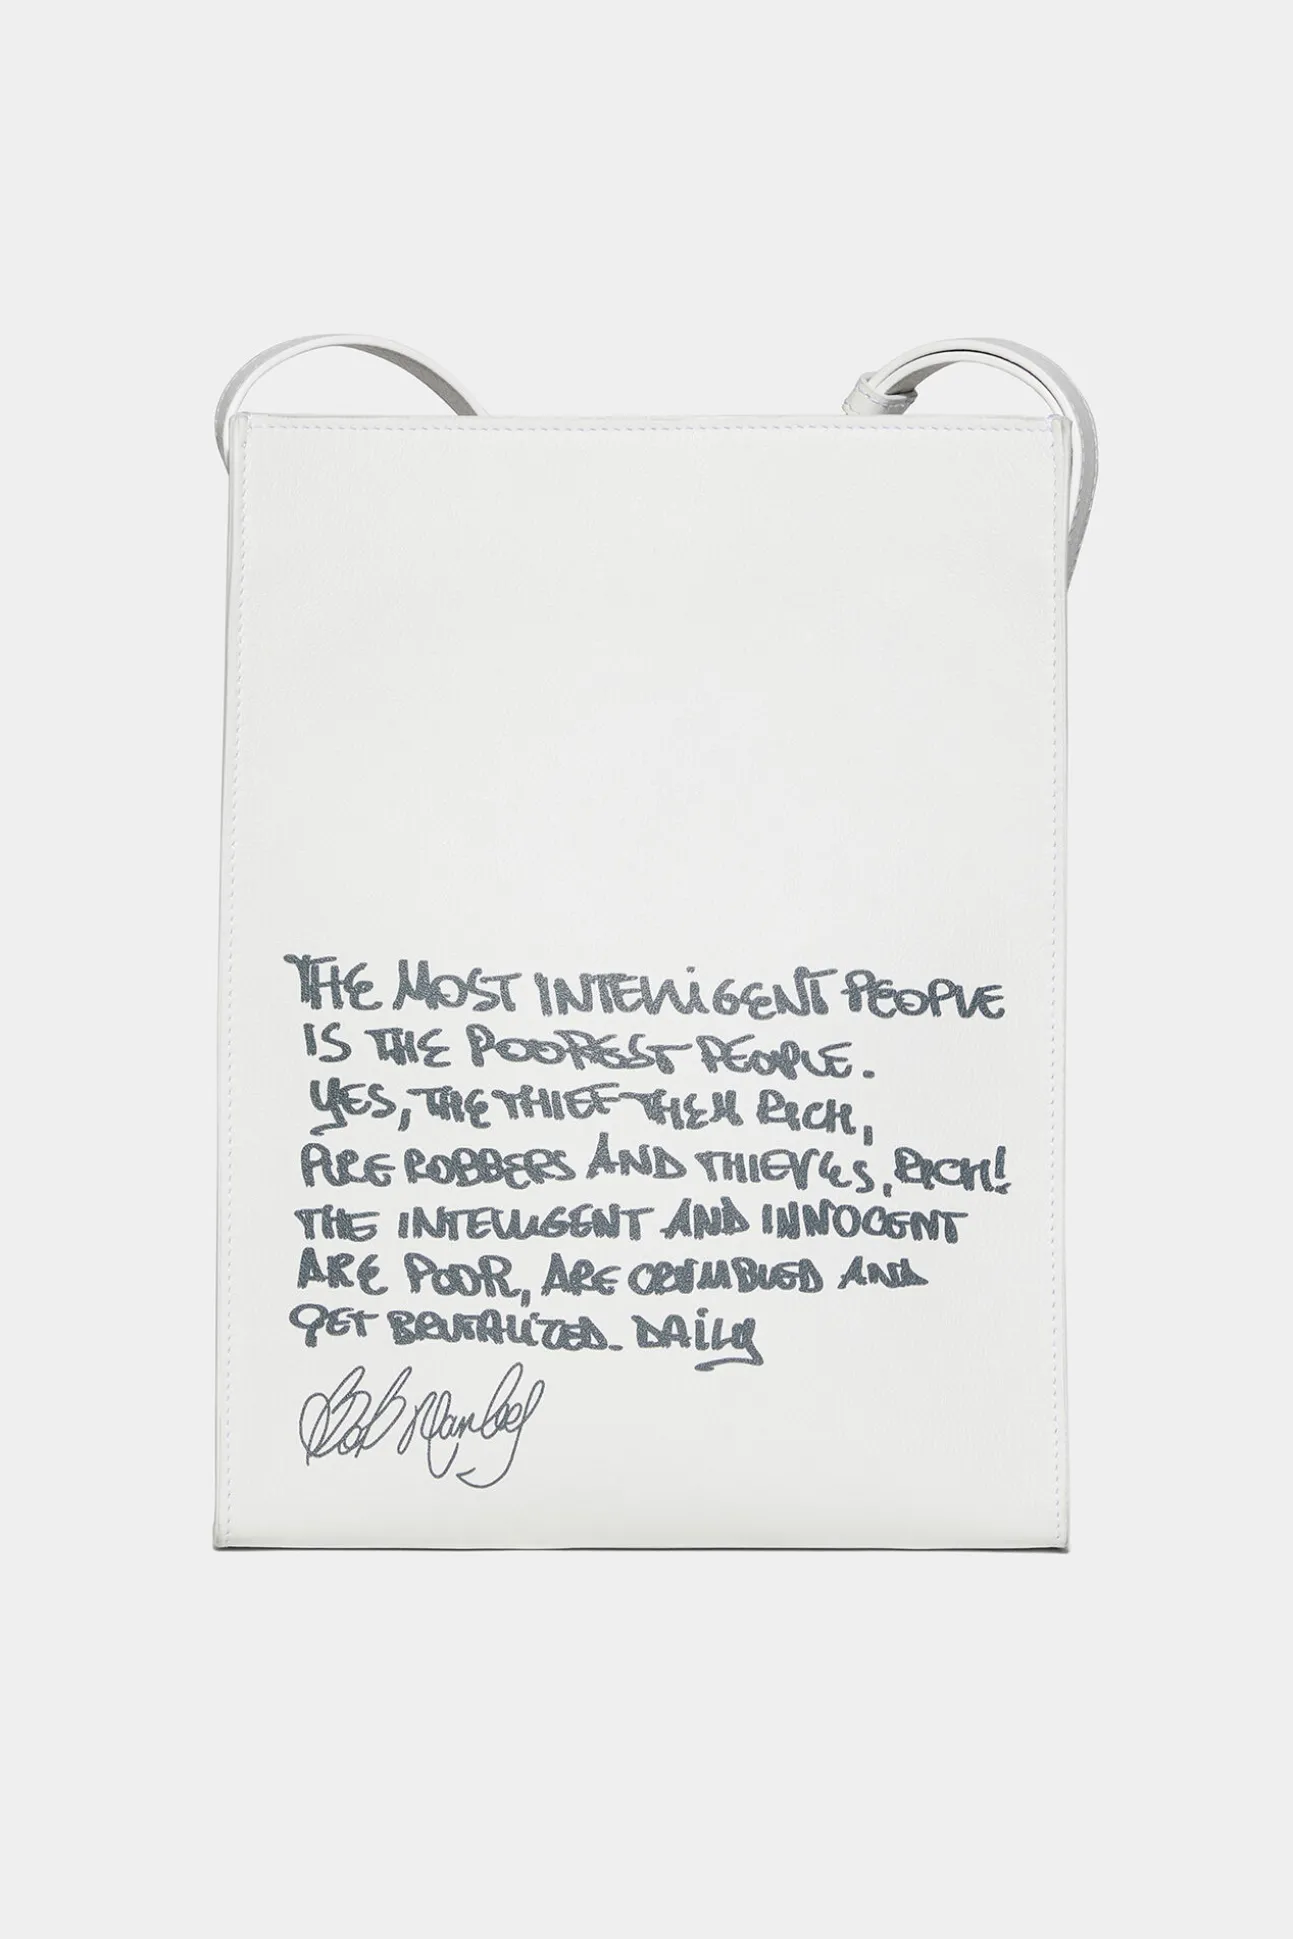 THE MOST INTELLIGENT PEOPLE
IS THE POOREST PEOPLE.
YES, THE THIEF THEM RICH,
PURE ROBBERS AND THIEVES, RICH!
THE INTELLIGENT AND INNOCENT
ARE POOR, ARE CRUMBLED AND
GET BRUTALIZED. DAILY
Bob Marley